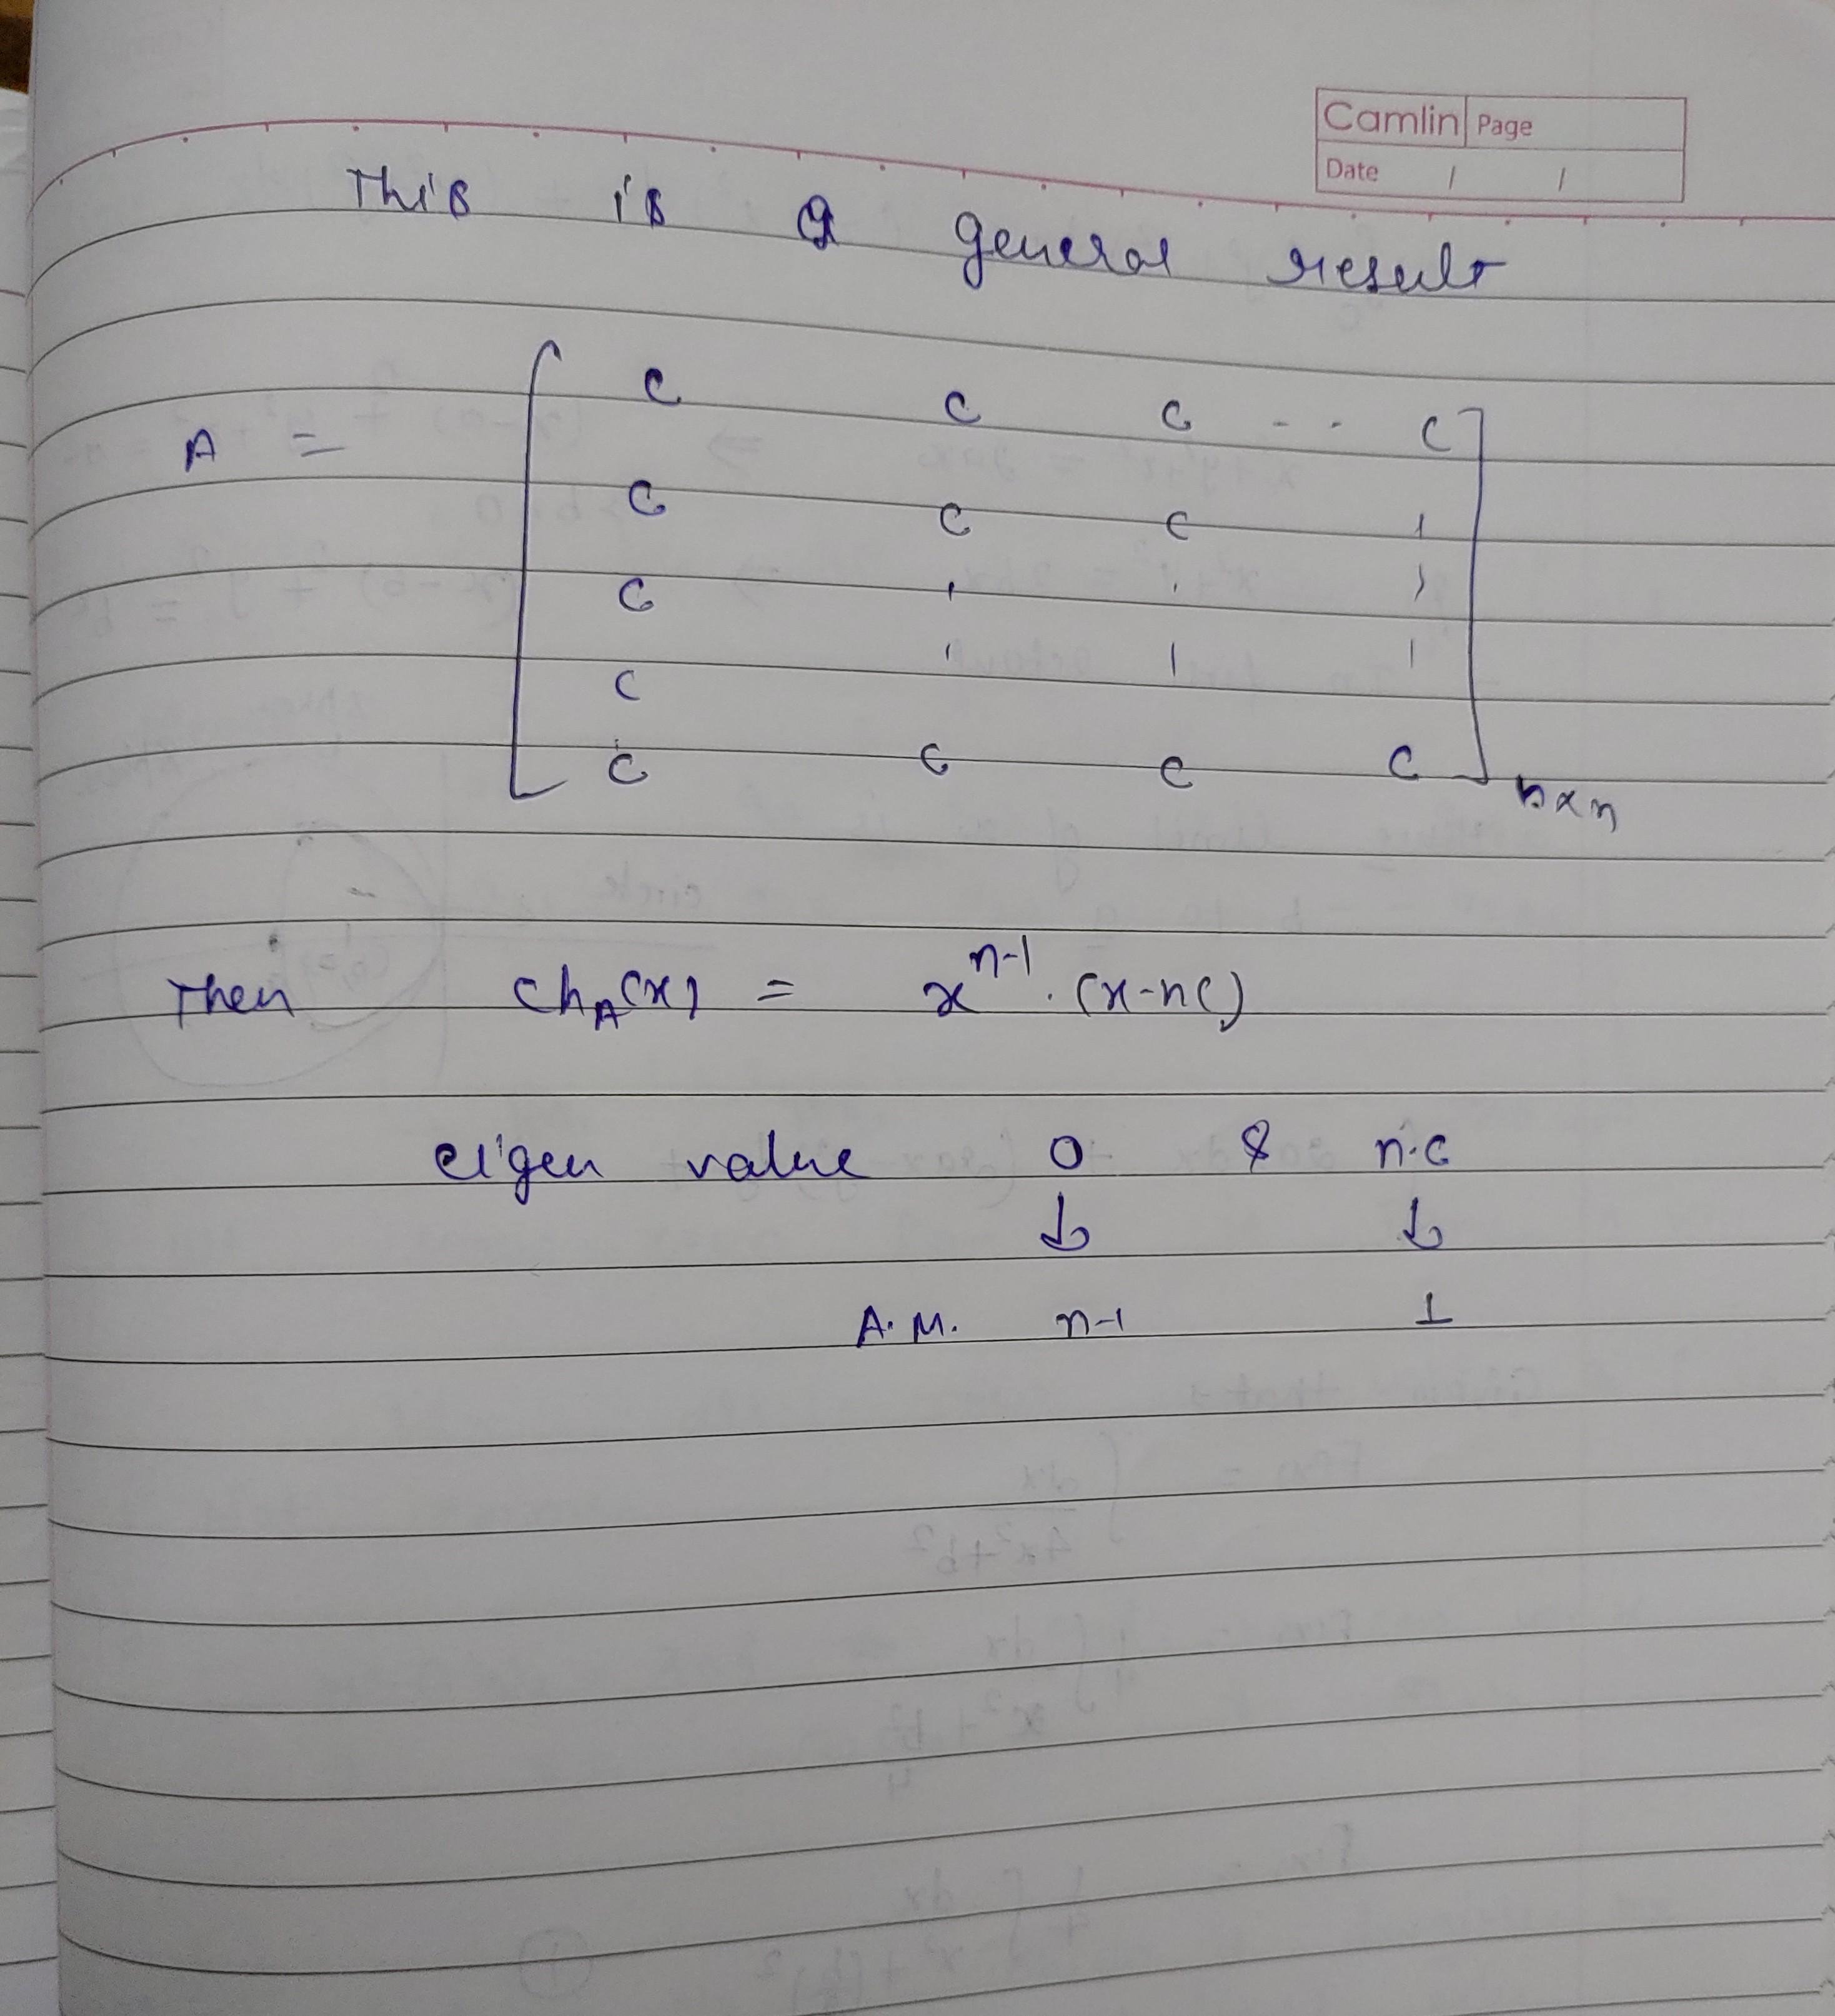 Camlin Page
Date / /
This is a general result
A = [ C C C - - C ]
C C C ı
C ı . ı
C ı | |
C C C C n×n
Then ch_A(x) = x^{n-1} . (x-nc)
eigen value 0 & n.c
↓ ↓
A.M. n-1 1